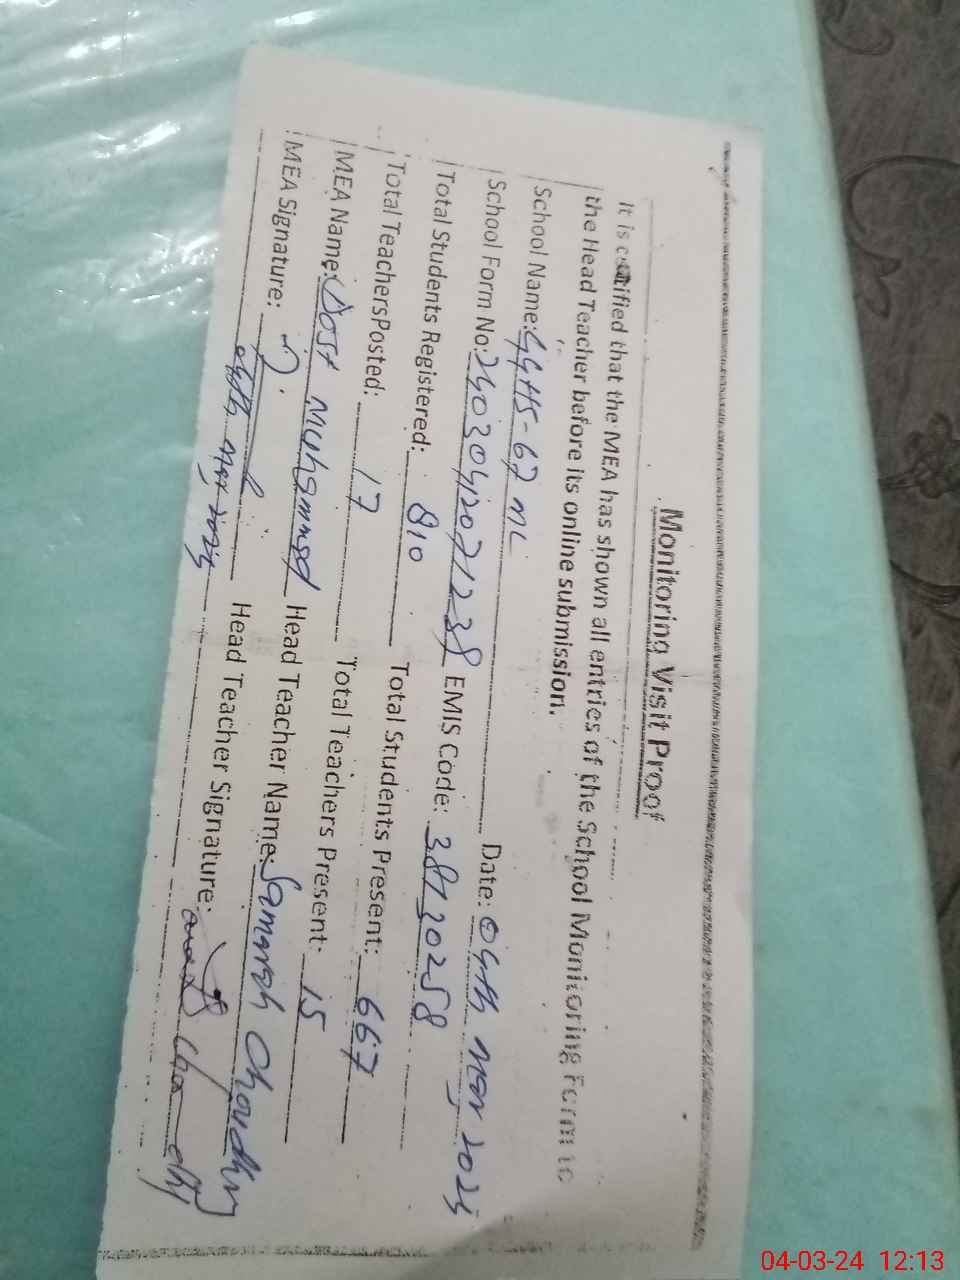 Monitoring Visit Proof
It is certified that the MEA has shown all entries of the School Monitoring Form to
the Head Teacher before its online submission.
School Name: GGHS-67 ML Date: 04th Mar 2024
School Form No: EMIS Code: 38130258
Total Students Registered: 810 Total Students Present: 667
Total TeachersPosted: 17 Total Teachers Present: 15
MEA Name: Dost Muhammad Head Teacher Name: Samrah Choudhry
MEA Signature: Head Teacher Signature:
04th Mar 2024
04-03-24 12:13